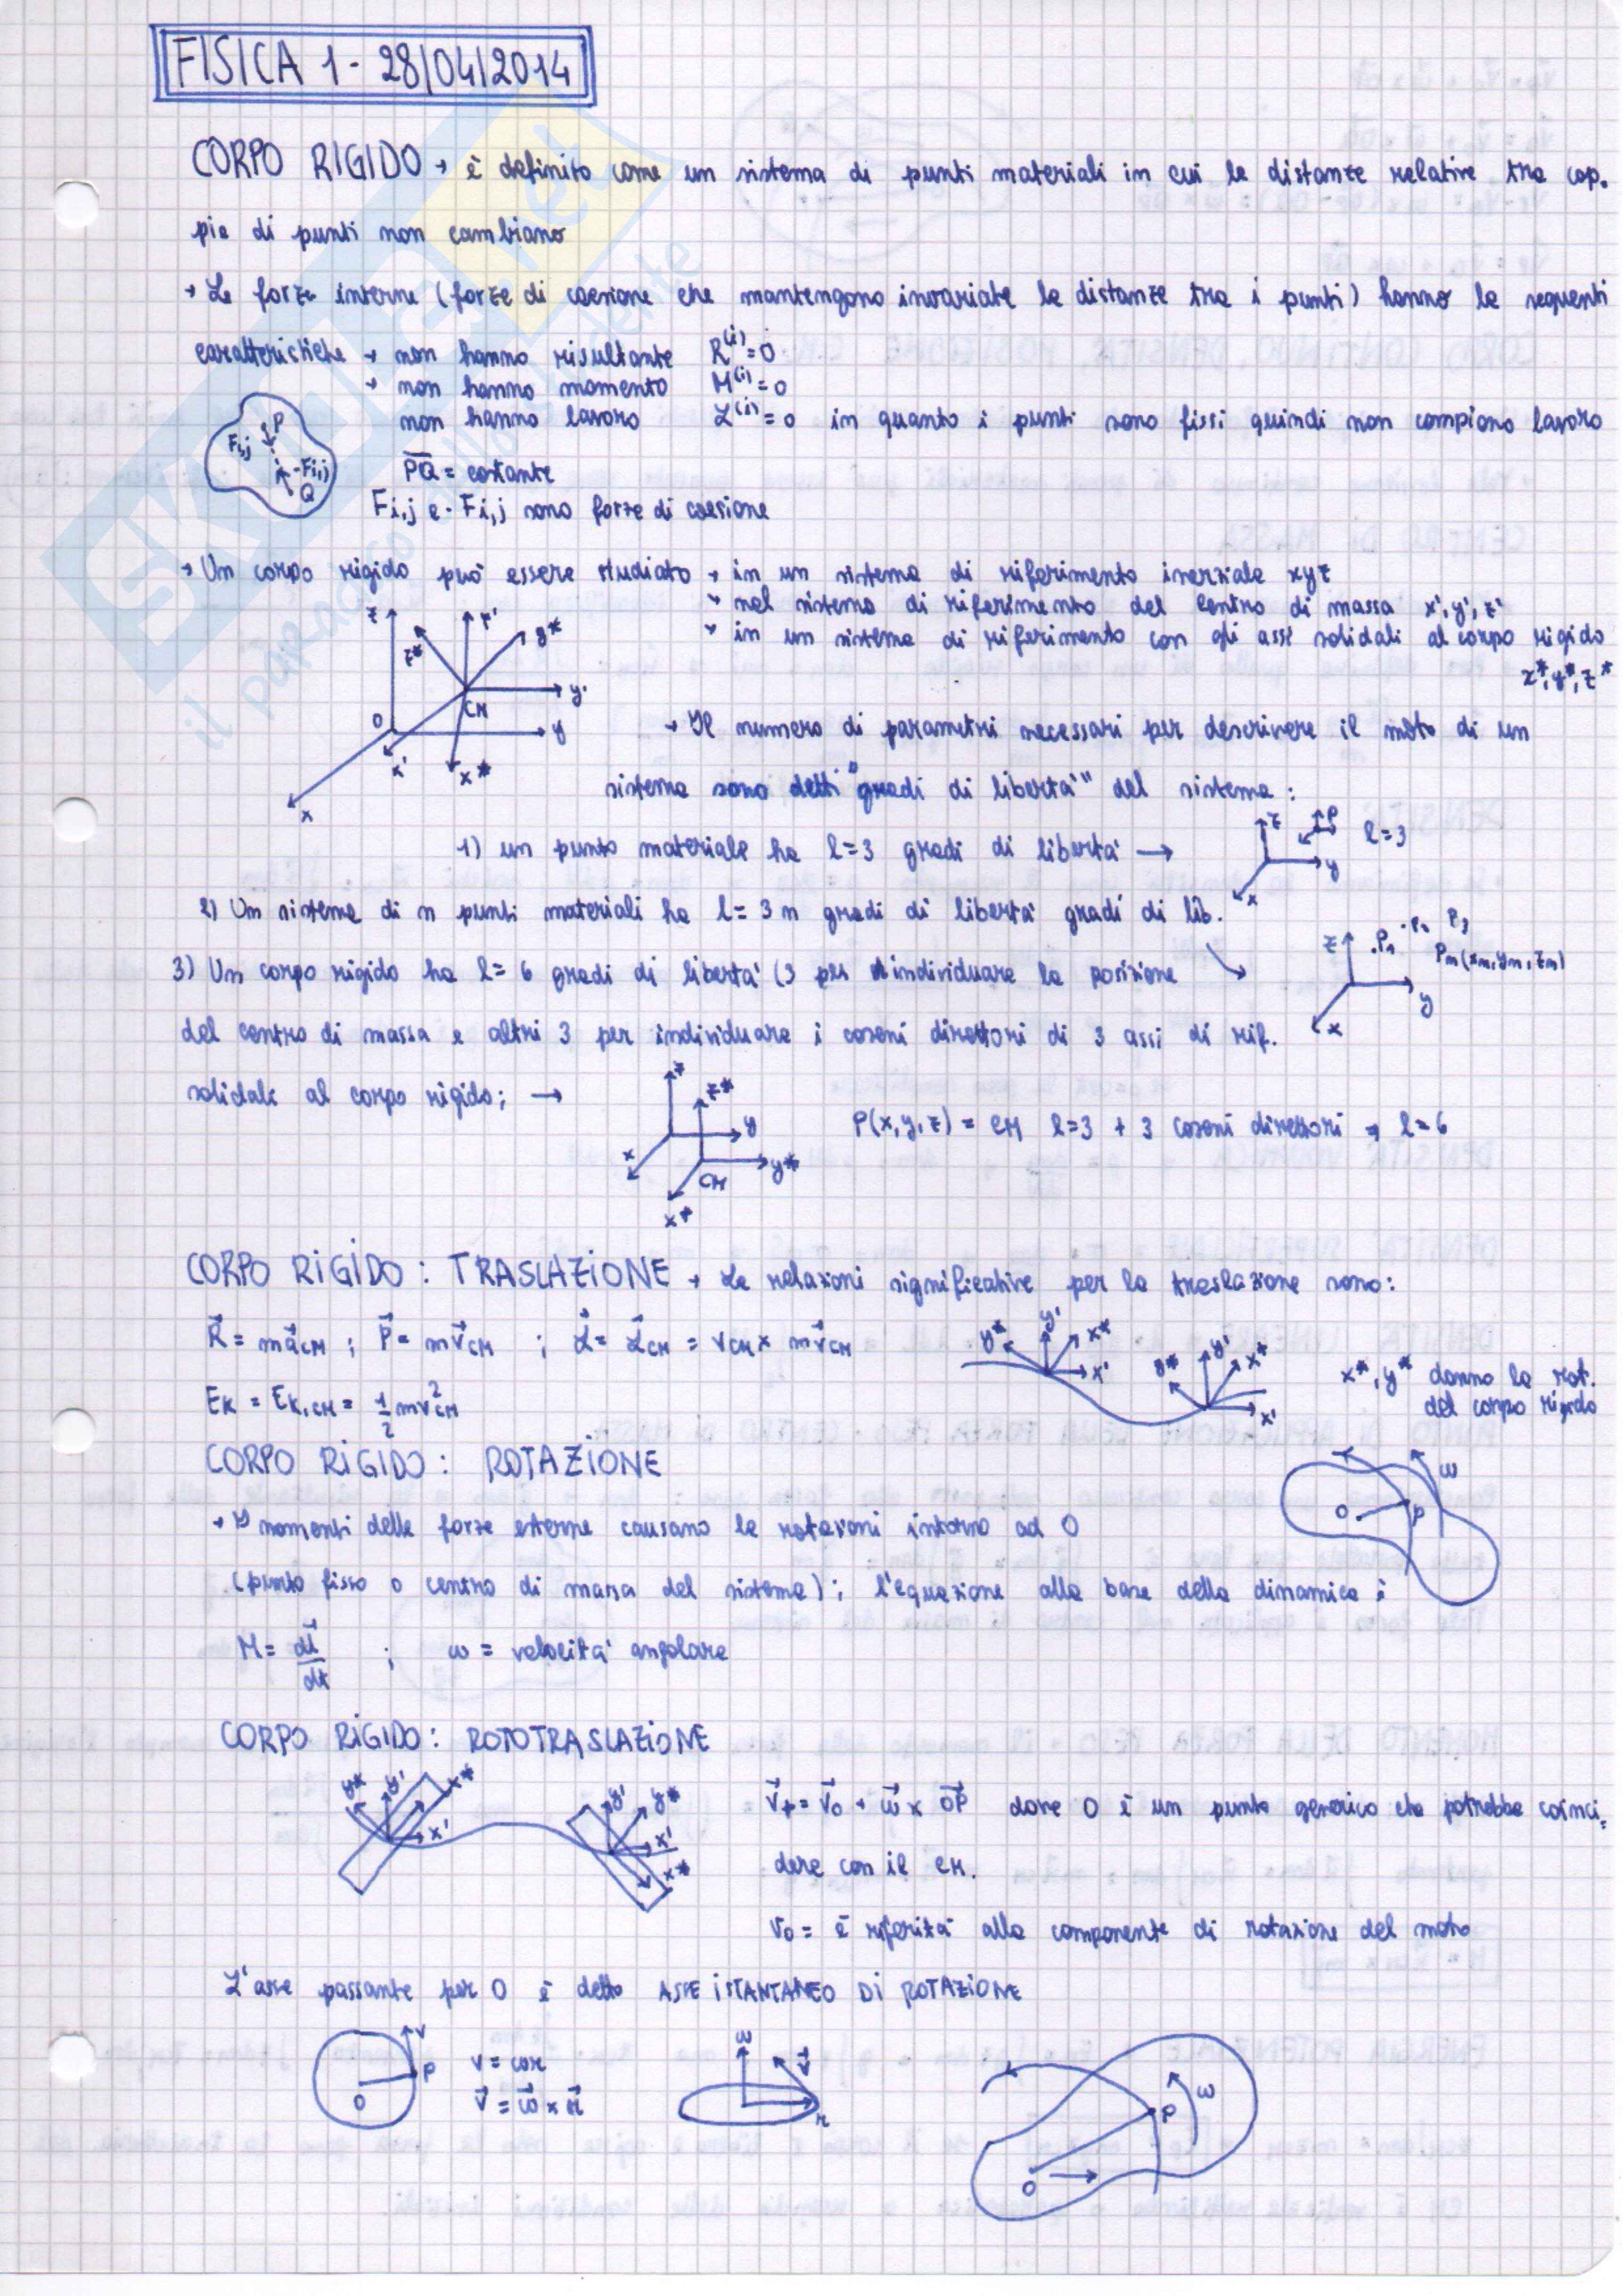 FISICA 1 - 28/04/2014
CORPO RIGIDO → è definito come un sistema di punti materiali in cui le distanze relative tra cop=
pie di punti non cambiano
→ Le forze interne (forze di coesione che mantengono invariate le distanze tra i punti) hanno le seguenti
caratteristiche → non hanno risultante R^(i)=0
→ non hanno momento M^(i)=0
non hanno lavoro L^(i)=0 in quanto i punti sono fissi quindi non compiono lavoro
P
Fi,j
-Fi,j
Q
PQ = costante
Fi,j e -Fi,j sono forze di coesione
→ Un corpo rigido può essere studiato → in un sistema di riferimento inerziale xyz
→ nel sistema di riferimento del centro di massa x', y', z'
→ in un sistema di riferimento con gli assi solidali al corpo rigido
x*, y*, z*
z z' y*
z*
y'
CM
O y
x' x*
x
→ Il numero di parametri necessari per descrivere il moto di un
sistema sono detti "gradi di libertà" del sistema:
1) un punto materiale ha l=3 gradi di libertà →
z P l=3
y
x
2) Un sistema di n punti materiali ha l= 3n gradi di libertà gradi di lib.
z .P1 .P2 P3
Pm(xm, ym, zm)
y
x
3) Un corpo rigido ha l= 6 gradi di libertà (3 per individuare la posizione
del centro di massa e altri 3 per individuare i coseni direttori di 3 assi di rif.
solidali al corpo rigido; →
z z*
y
x y*
CM
x*
P(x,y,z) = CM l=3 + 3 coseni direttori → l=6
CORPO RIGIDO: TRASLAZIONE → Le relazioni significative per la traslazione sono:
R⃗ = ma⃗CM ; P⃗ = mv⃗CM ; L⃗ = L⃗CM = rCM x mv⃗CM
y* y' x*
x'
y* y' x*
x'
x*, y* danno la rot.
del corpo rigido
EK = EK,CM = 1/2 mv²CM
CORPO RIGIDO: ROTAZIONE
ω
O P
→ I momenti delle forze esterne causano le rotazioni intorno ad O
(punto fisso o centro di massa del sistema); l'equazione alla base della dinamica è
M = dL⃗/dt ; ω = velocità angolare
CORPO RIGIDO: ROTOTRASLAZIONE
y* y' x*
x'
y' y*
x'
x*
v⃗P = v⃗O + ω⃗ x OP⃗ dove O è un punto generico che potrebbe coinci=
dere con il CM.
vO = è riferita alla componente di rotazione del moto
L'asse passante per O è detto ASSE ISTANTANEO DI ROTAZIONE
v
P
O
v = ωr
v⃗ = ω⃗ x r⃗
ω
v⃗
r
ω
P
O
SKUOLA.net
il paradiso dello studente